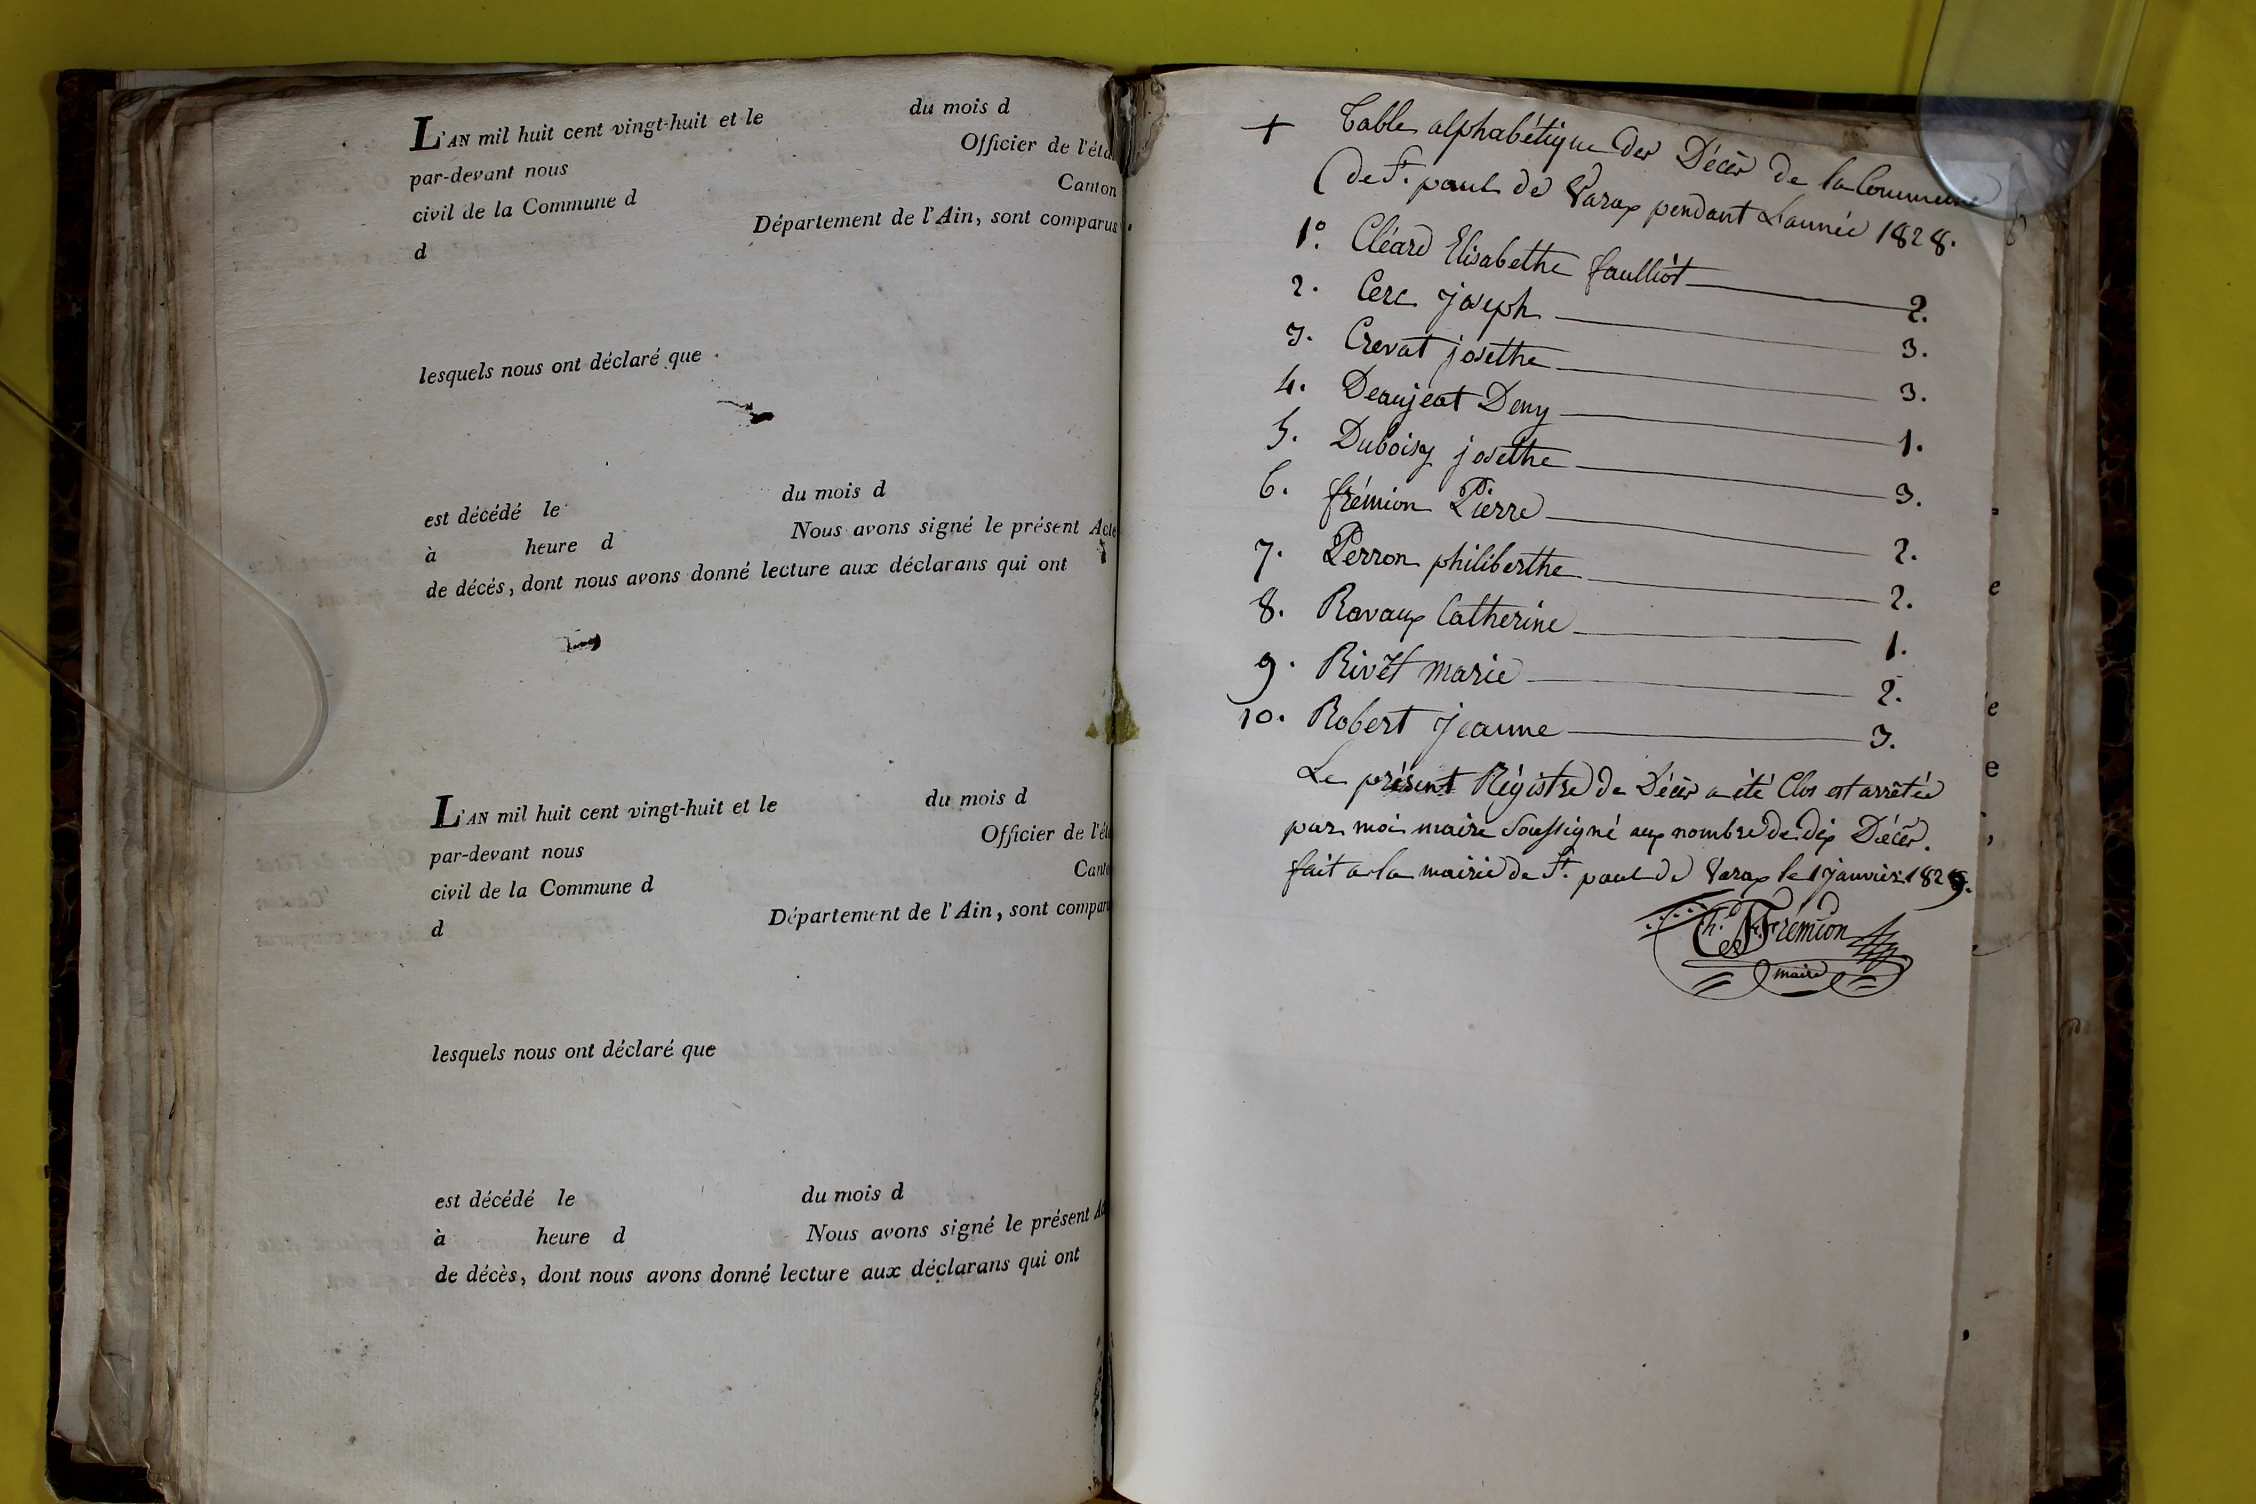 L'AN mil huit cent vingt-huit et le du mois d
par-devant nous Officier de l'éta
civil de la Commune d Canton
d Département de l'Ain, sont comparus
lesquels nous ont déclaré que
est décédé le du mois d
à heure d Nous avons signé le présent Acte
de décés, dont nous avons donné lecture aux déclarans qui ont
L'AN mil huit cent vingt-huit et le du mois d
par-devant nous Officier de l'éta
civil de la Commune d Canto
d Département de l'Ain, sont comparu
lesquels nous ont déclaré que
est décédé le du mois d
à heure d Nous avons signé le présent Ac
de décès, dont nous avons donné lecture aux déclarans qui ont
+ Table alphabétique des Décès de la Commune
de St. paul de Varax pendant L'année 1828.
1º. Cléard Elisabethe faulliot 2.
2. Cerc joseph 3.
3. Crevat josethe 3.
4. Deaujeat Deny 1.
5. Duboisy josethe 3.
6. frémion Pierre 2.
7. Perron philiberthe 2.
8. Ravaux Catherine 1.
9. Rivet marie 2.
10. Robert jeanne 3.
Le présent Régistre de Décès a été Clos est arrêtée
par moi maire Soussigné aux nombre de dix Décès.
fait a la mairie de St. paul de Varax le 1 janvier 1829.
Frémion
maire